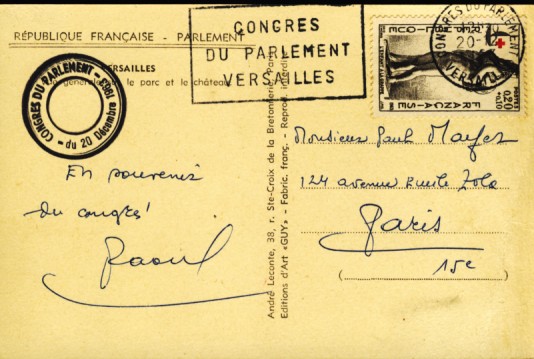 RÉPUBLIQUE FRANÇAISE - PARLEMENT
VERSAILLES
générale le parc et le château
CONGRES DU PARLEMENT - 1963 -
du 20 Décembre
CONGRES
DU PARLEMENT
VERSAILLES
CONGRES DU PARLEMENT
20-12
VERSAILLES
POSTES
0,20
+0,10
FRANÇAISE
En souvenir
du congrès
Raoul
André Leconte, 38, r. Ste-Croix de la Bretonnerie, Paris
Editions d'Art «GUY» - Fabric. franç. - Reprod. interdite
Monsieur Paul
124 avenue Emile Zola
Paris
15e